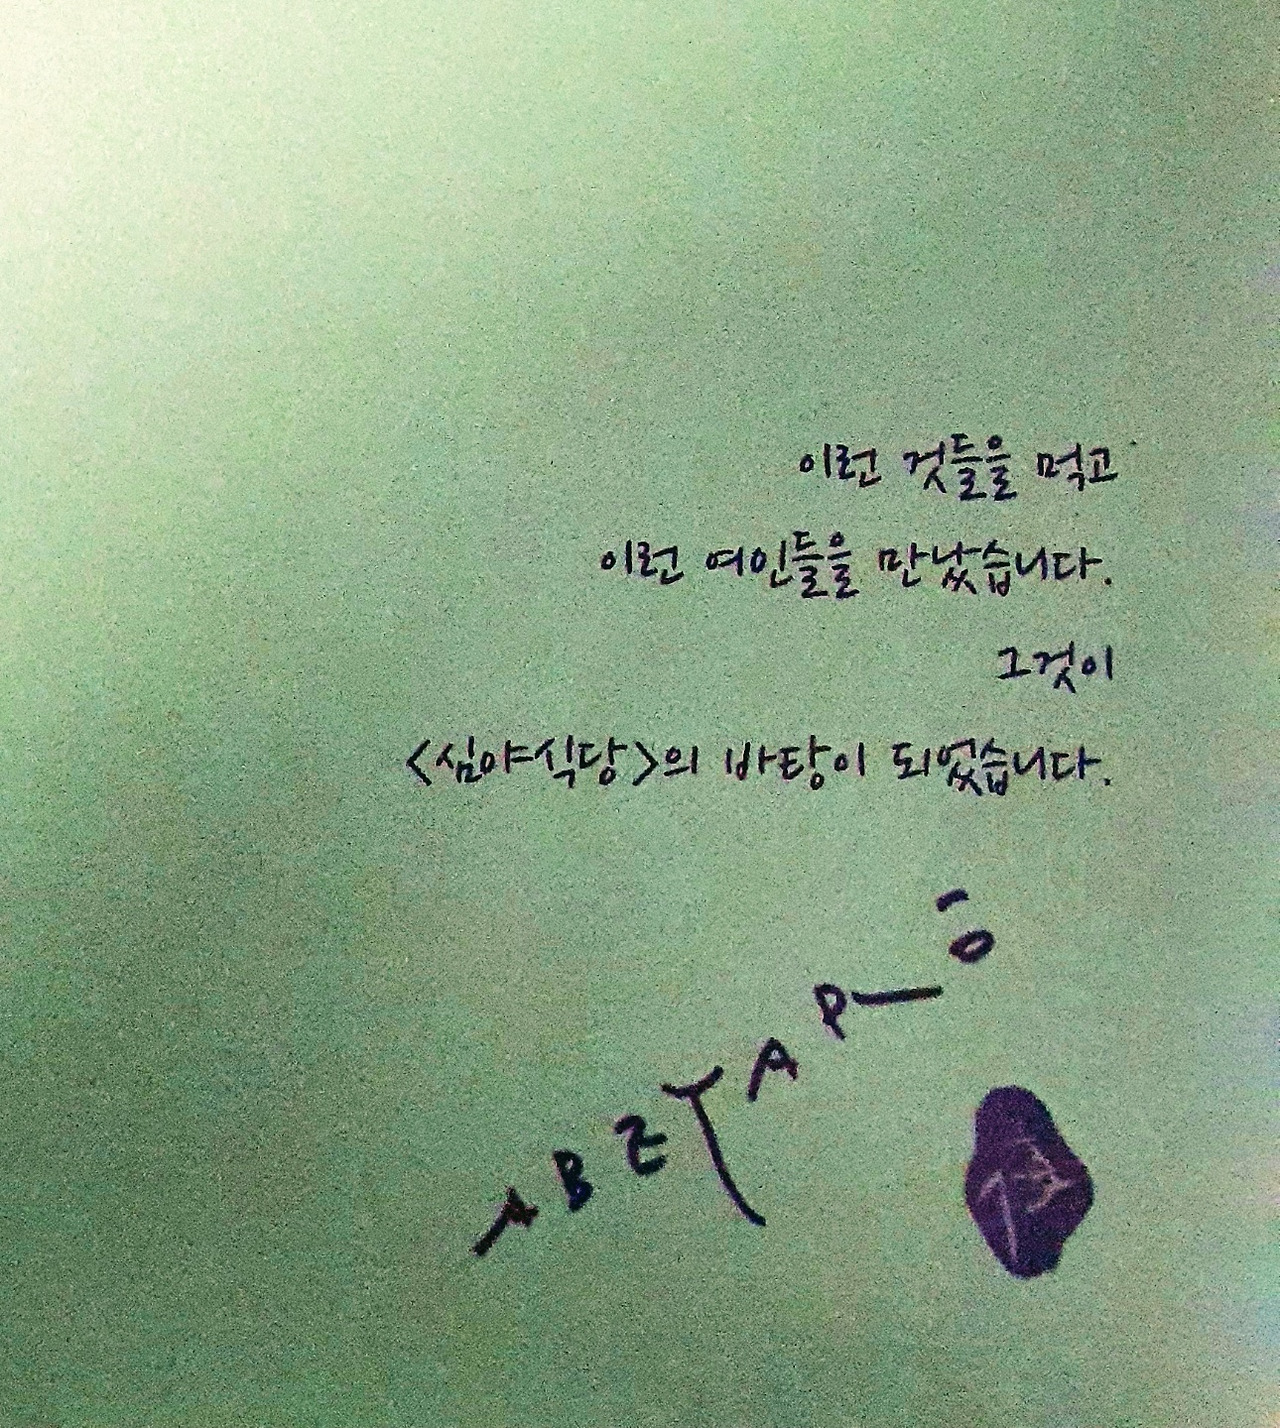 이런 것들을 먹고
이런 여인들을 만났습니다.
그것이
<심야식당>의 바탕이 되었습니다.